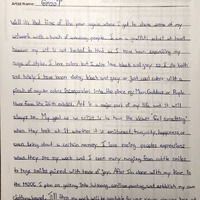 Artist Name: Groo?
Well its that time of the year again where I get to share some of my
artwork with a bunch of amazing people. I am a graffiti artist at heart
because my art is not limited to that as I have been expanding my
range of styles. I love colors but I also love black and grey so I do both
and lately I have been doing black and grey or just solid colors with a
splash of regular colors incorporated into the piece
Art is a major part of my life and it will
always be. My goal as an artist is to have the viewer feel something
when they look at it whether it is excitement, tranquility, happiness, or
even bring about a certain memory. I love seeing peoples expressions
when they see my work and I seen many ranging from subtle smiles
to huge smiles paired with tears of joy. After I'm done with my time in
the MDOC I plan on getting into tattooing, continue painting and establish my own
clothing brand. Till then my work will be available